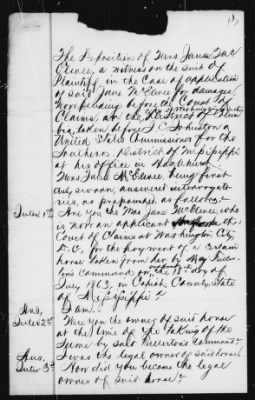 (1)
The Deposition of Mrs Jane Mc
Elence, a witness on the suit of
Plaintiff, in the Case of application
of said Jane McElence for damages
now pending before the Court of
Washington City
Claims, in the District of Colum
bia, taken before J. C. Johnston a
United States Commissioner for the
Southern District of Mississippi
at his office in Hazlehurst
Mrs Jane McElence, being first
duly sworn, answered interrogato
ries, as propounded as follows:
Inter 1st Are you the Mrs Jane McElence, who
is now an applicant before the
Court of Claims at Washington City
D.C. for the payment of a certain
horse taken from her by Maj Fuller
tons command, on the 18th day of
July 1863, in Copiah County, State
of Mississippi?
Ans, I am.
Inter 2d Were you the owner of said horse
at the time of the taking of the
same by said Fullertons command?
Ans. I was the legal owner of said horse.
Inter 3d How did you become the legal
owner of said horse?